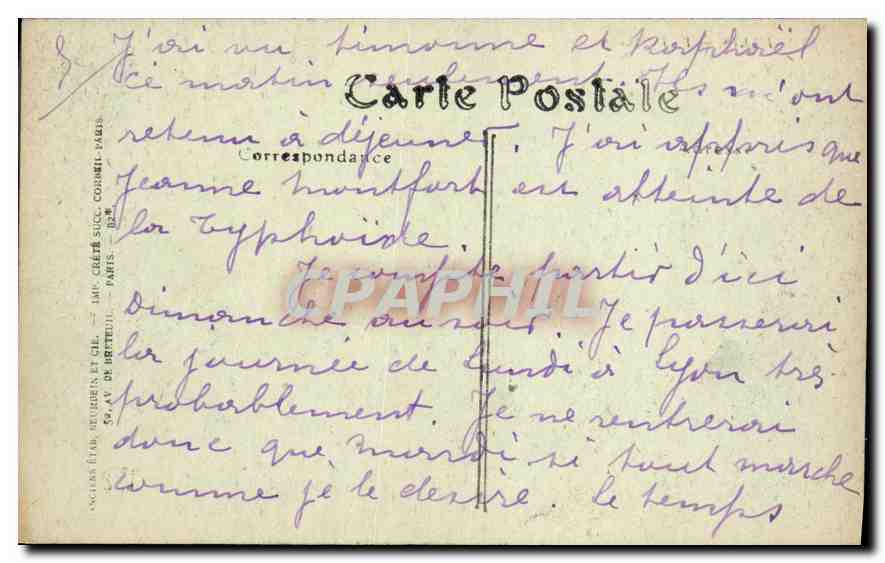 J'ai vu Simonne et Raphaël
ce matin seulement. Ils m'ont
Carte Postale
retenu à déjeuner. J'ai appris que
Correspondance
Jeanne Montfort est atteinte de
la typhoïde.
Je compte partir d'ici
CPAPHIL
Dimanche au soir. Je passerai
la journée de lundi à Lyon très
probablement. Je ne rentrerai
donc que mardi si tout marche
comme je le désire. Le temps
ANCIENS ETAB. NEURDEIN ET CIE. — IMP. CRÉTÉ SUCC. CORBEIL-PARIS.
52, AV. DE BRETEUIL. — PARIS. —